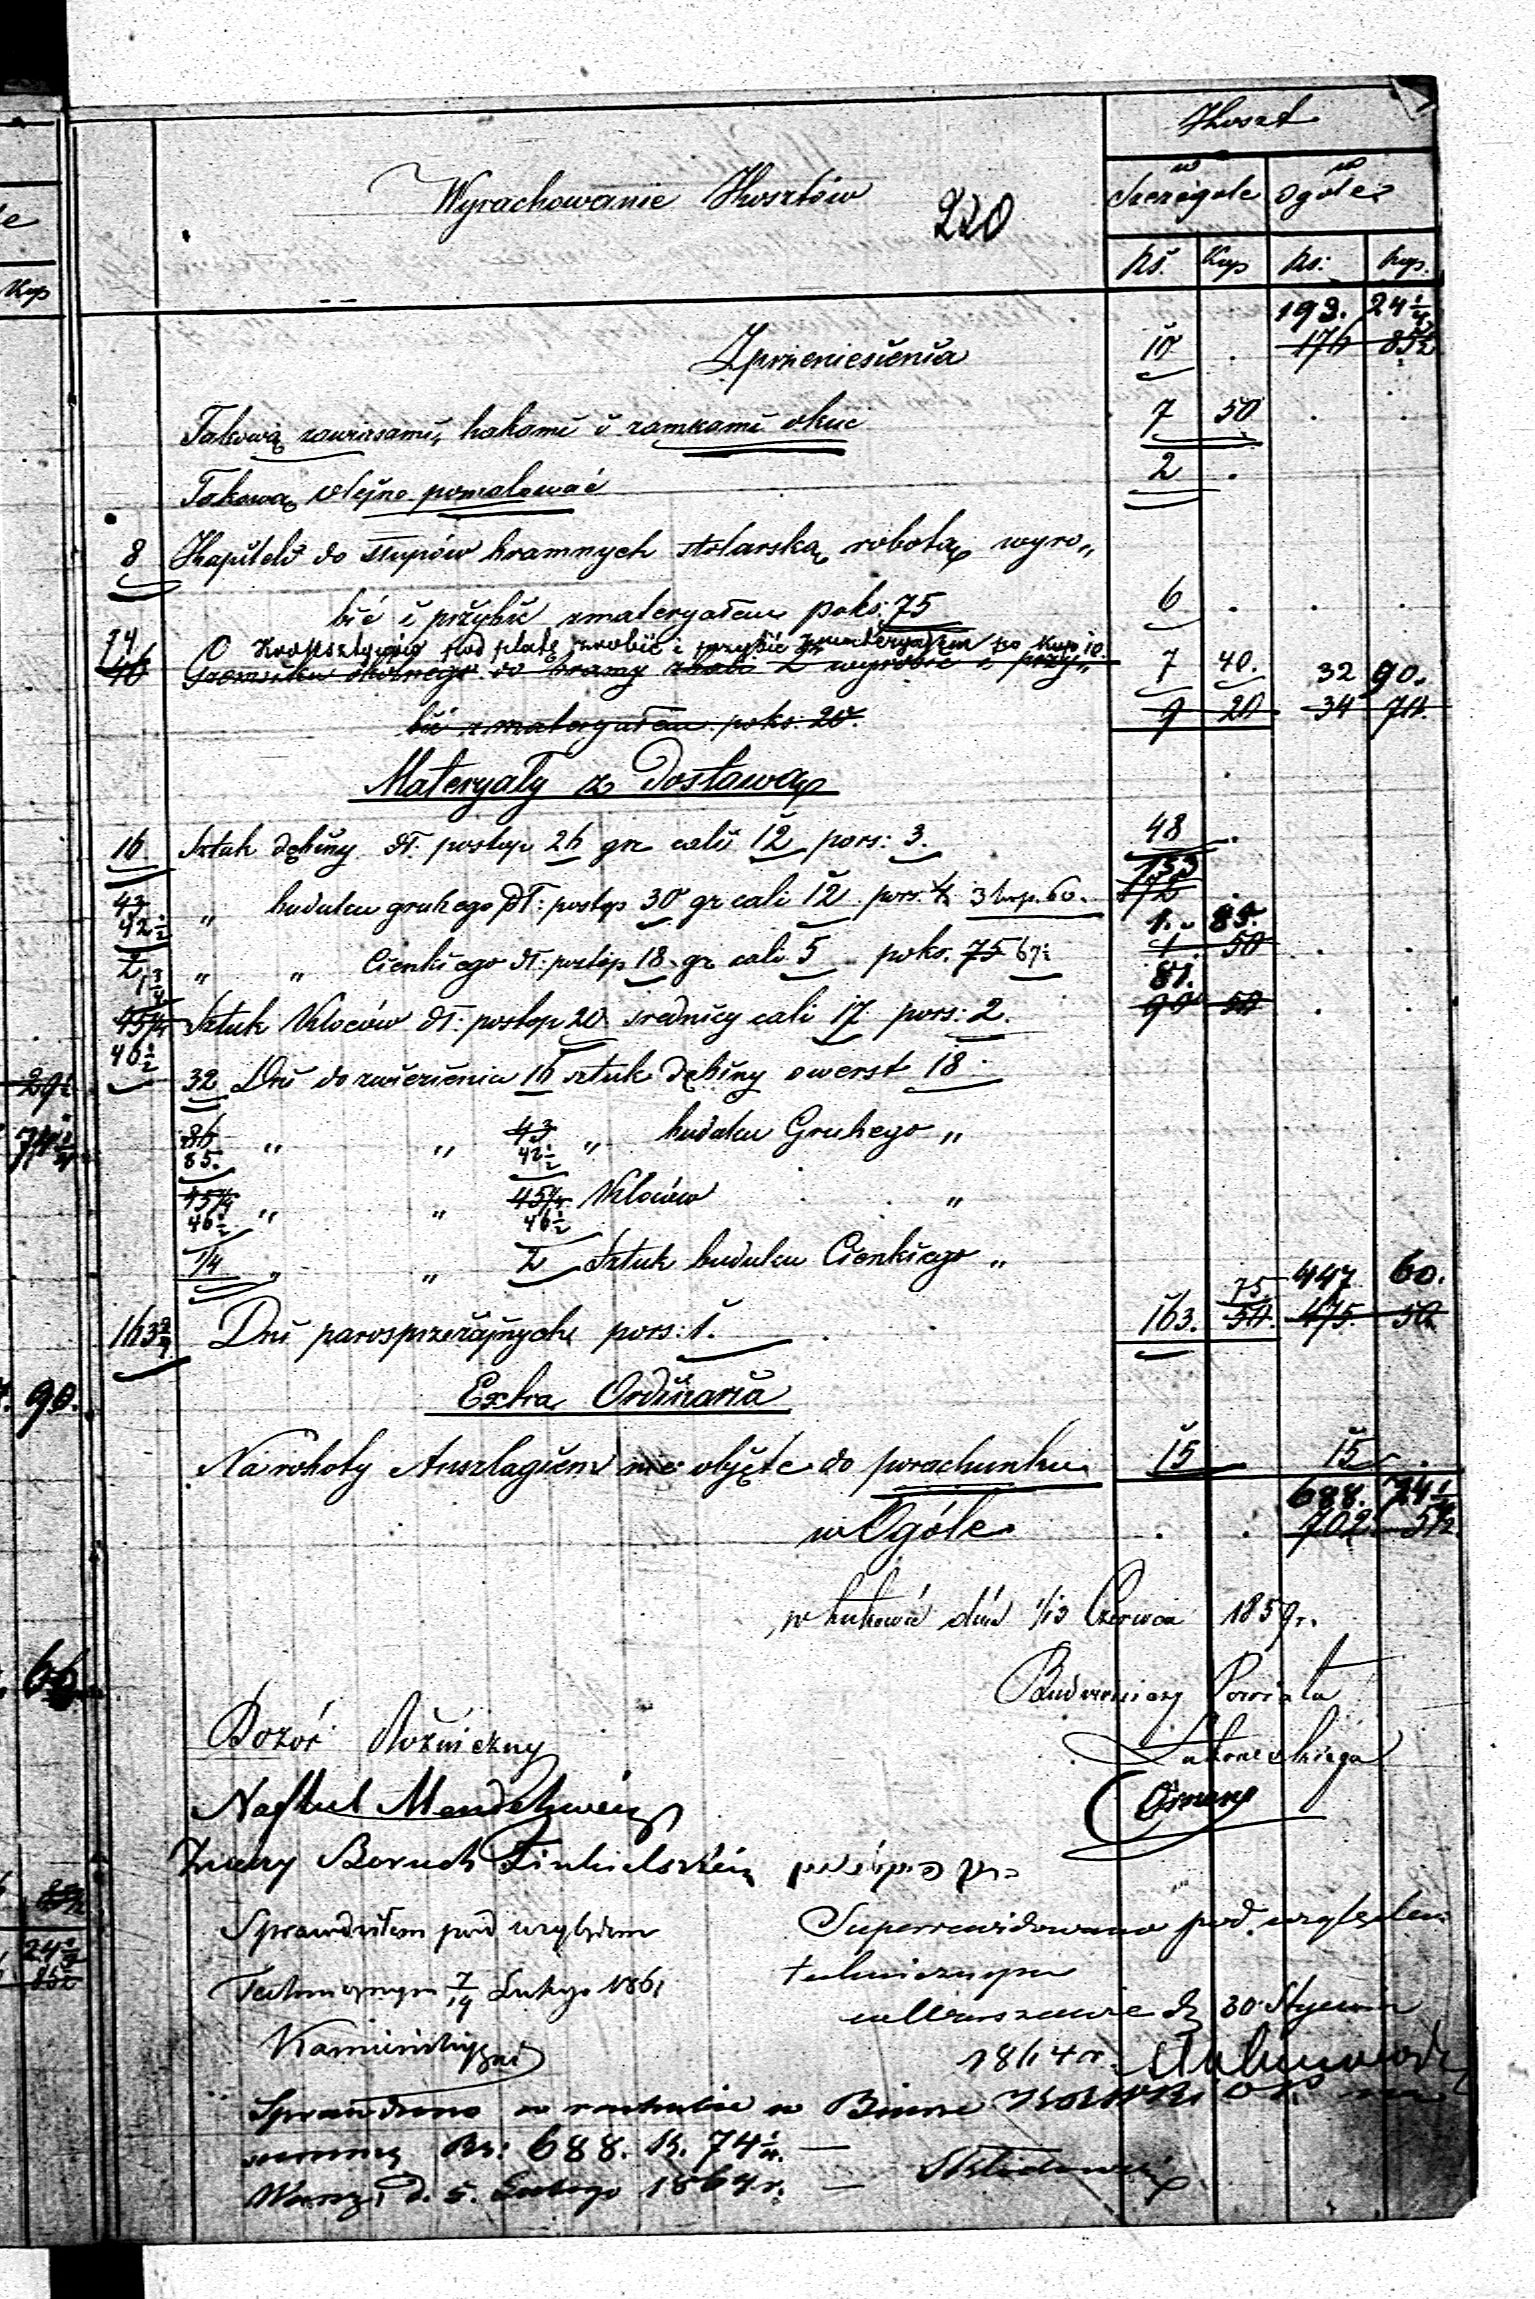 Wyrachowanie Kosztów
220
Koszt
w Szczególe
w Ogóle
Rs. Kop Rs: Kop.
193. 24 1/4
Z przeniesienia 10 . 176 85 1/2
Takową zawiasami, hakami i zamkami okuć 7 50 . .
Takową olejno pomalować 2 .
8 Kapiteli do słupów bramnych stolarską robotą wyro„
bić i przybić z materyałem po ks: 75 6 . . .
74 Kroksztynów pod płatę zrobić i przybić z materyałem po kop 10. 7 40. 32 90.
46 Gzemsiku do bramy wyrobić i przy„
bić z materyałem po ks: 20. 9 20 34 70.
Materyały z Dostawą
16 Sztuk dębiny dł. postop 26 gr cali 12 po rs: 3. 48 .
153
43 42 1/2 „ budulcu grubego dł: postop 30 gr cali 12 po rs. 4 3 kop. 60. 172 .
1. 85.
2 1 3/4 „ „ Cienkiego dł: postop 18 gr cali 5 po ks. 75 67 1/2 1 50 . .
81.
45 1/4 Sztuk Kloców dł: postop 20 średnicy cali 17 po rs: 2. 90 50 . .
46 1/2
32 Dni do zwiezienia 16 sztuk dębiny o werst 18
86 85. „ „ 43 42 1/2 „ budulcu Grubego „
45 1/4 46 1/2 „ „ 45 1/4 46 1/2 Kloców „
1/4 „ „ 2 Sztuk budulcu Cienkiego „
75. 447 60.
163 3/4 Dni parosprzężajnych po rs: 1. 163. 50. 475. 50.
Extra Ordinaria
Na roboty Anszlagiem nie objęte do porachunku 15 15 .
688. 74 1/4
w Ogóle . . 702 5 1/2
w Łukowie dnia 1/13 Czerwca 1859 r.
Budowniczy Powiatu
Łukowskiego
Dozór Bóżniczny
Sprawdziłem pod względem
Technicznym 7/19 Lutego 1861
Superrewidowano pod względem
technicznym
w Warszawie d. 30 Stycznia
1864 r.
Sprawdzono w rachubie w Biurze
summę Rs: 688. K. 74 1/4. —
Warsz. d. 5. Lutego 1864 r. —